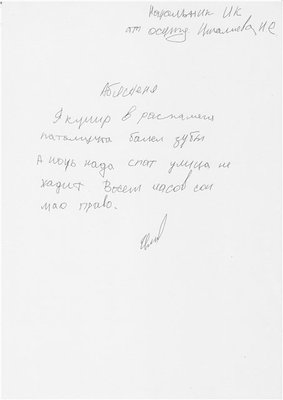 Начальник ИК
от осужд Ишалиева НС
Абяснения
Я курир в распалага
паталмучта балел зубы
А ночь нада спат улица не
хадит Восем часов сон
маю право.